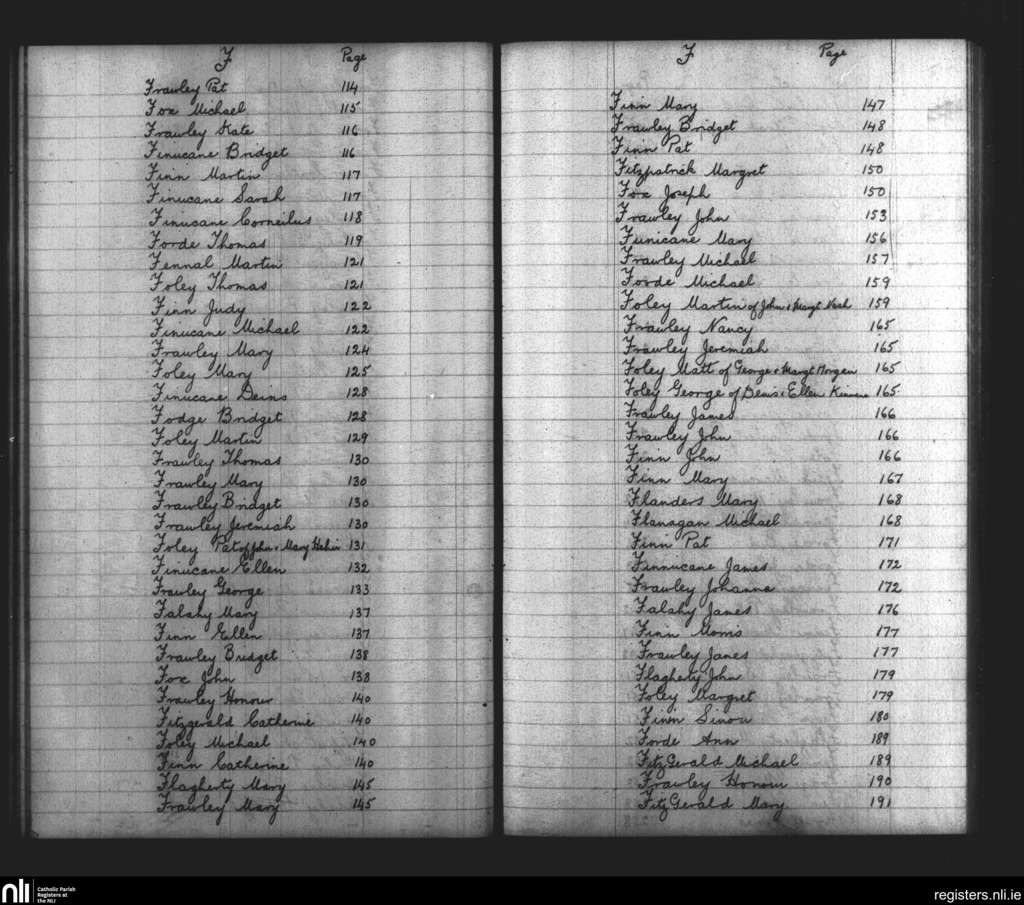 F Page
Frawley Pat 114
Fox Michael 115
Frawley Kate 116
Finucane Bridget 116
Finn Martin 117
Finucane Sarah 117
Finucane Corneilus 118
Forde Thomas 119
Fennal Martin 121
Foley Thomas 121
Finn Judy 122
Finucane Michael 122
Frawley Mary 124
Foley Mary 125
Finucane Deins 128
Fodge Bridget 128
Foley Martin 129
Frawley Thomas 130
Frawley Mary 130
Frawley Bridget 130
Frawley Jeremiah 130
Foley Pat of John & Mary 131
Finucane Ellen 132
Frawley George 133
Falahy Mary 137
Finn Ellen 137
Frawley Bridget 138
Fox John 138
Frawley Honour 140
Fitzgerald Catherine 140
Foley Michael 140
Finn Catherine 140
Flagherty Mary 145
Frawley Mary 145
F Page
Finn Mary 147
Frawley Bridget 148
Finn Pat 148
Fitzpatrick Margret 150
Fox Joseph 150
Frawley John 153
Funicane Mary 156
Frawley Michael 157
Forde Michael 159
Foley Martin of John & Margt Nash 159
Frawley Nancy 165
Frawley Jeremiah 165
Foley Matt of George & Margt Morgan 165
Foley George of Denis & Ellen 165
Frawley James 166
Frawley John 166
Finn John 166
Finn Mary 167
Flanders Mary 168
Flanagan Michael 168
Finn Pat 171
Finnucane James 172
Frawley Johanna 172
Falahy James 176
Finn Morris 177
Frawley James 177
Flagherty John 179
Foley Margret 179
Finn Simon 180
Forde Ann 189
FitzGerald Michael 189
Frawley Honour 190
FitzGerald Mary 191
nli Catholic Parish
Registers at
the NLI
registers.nli.ie